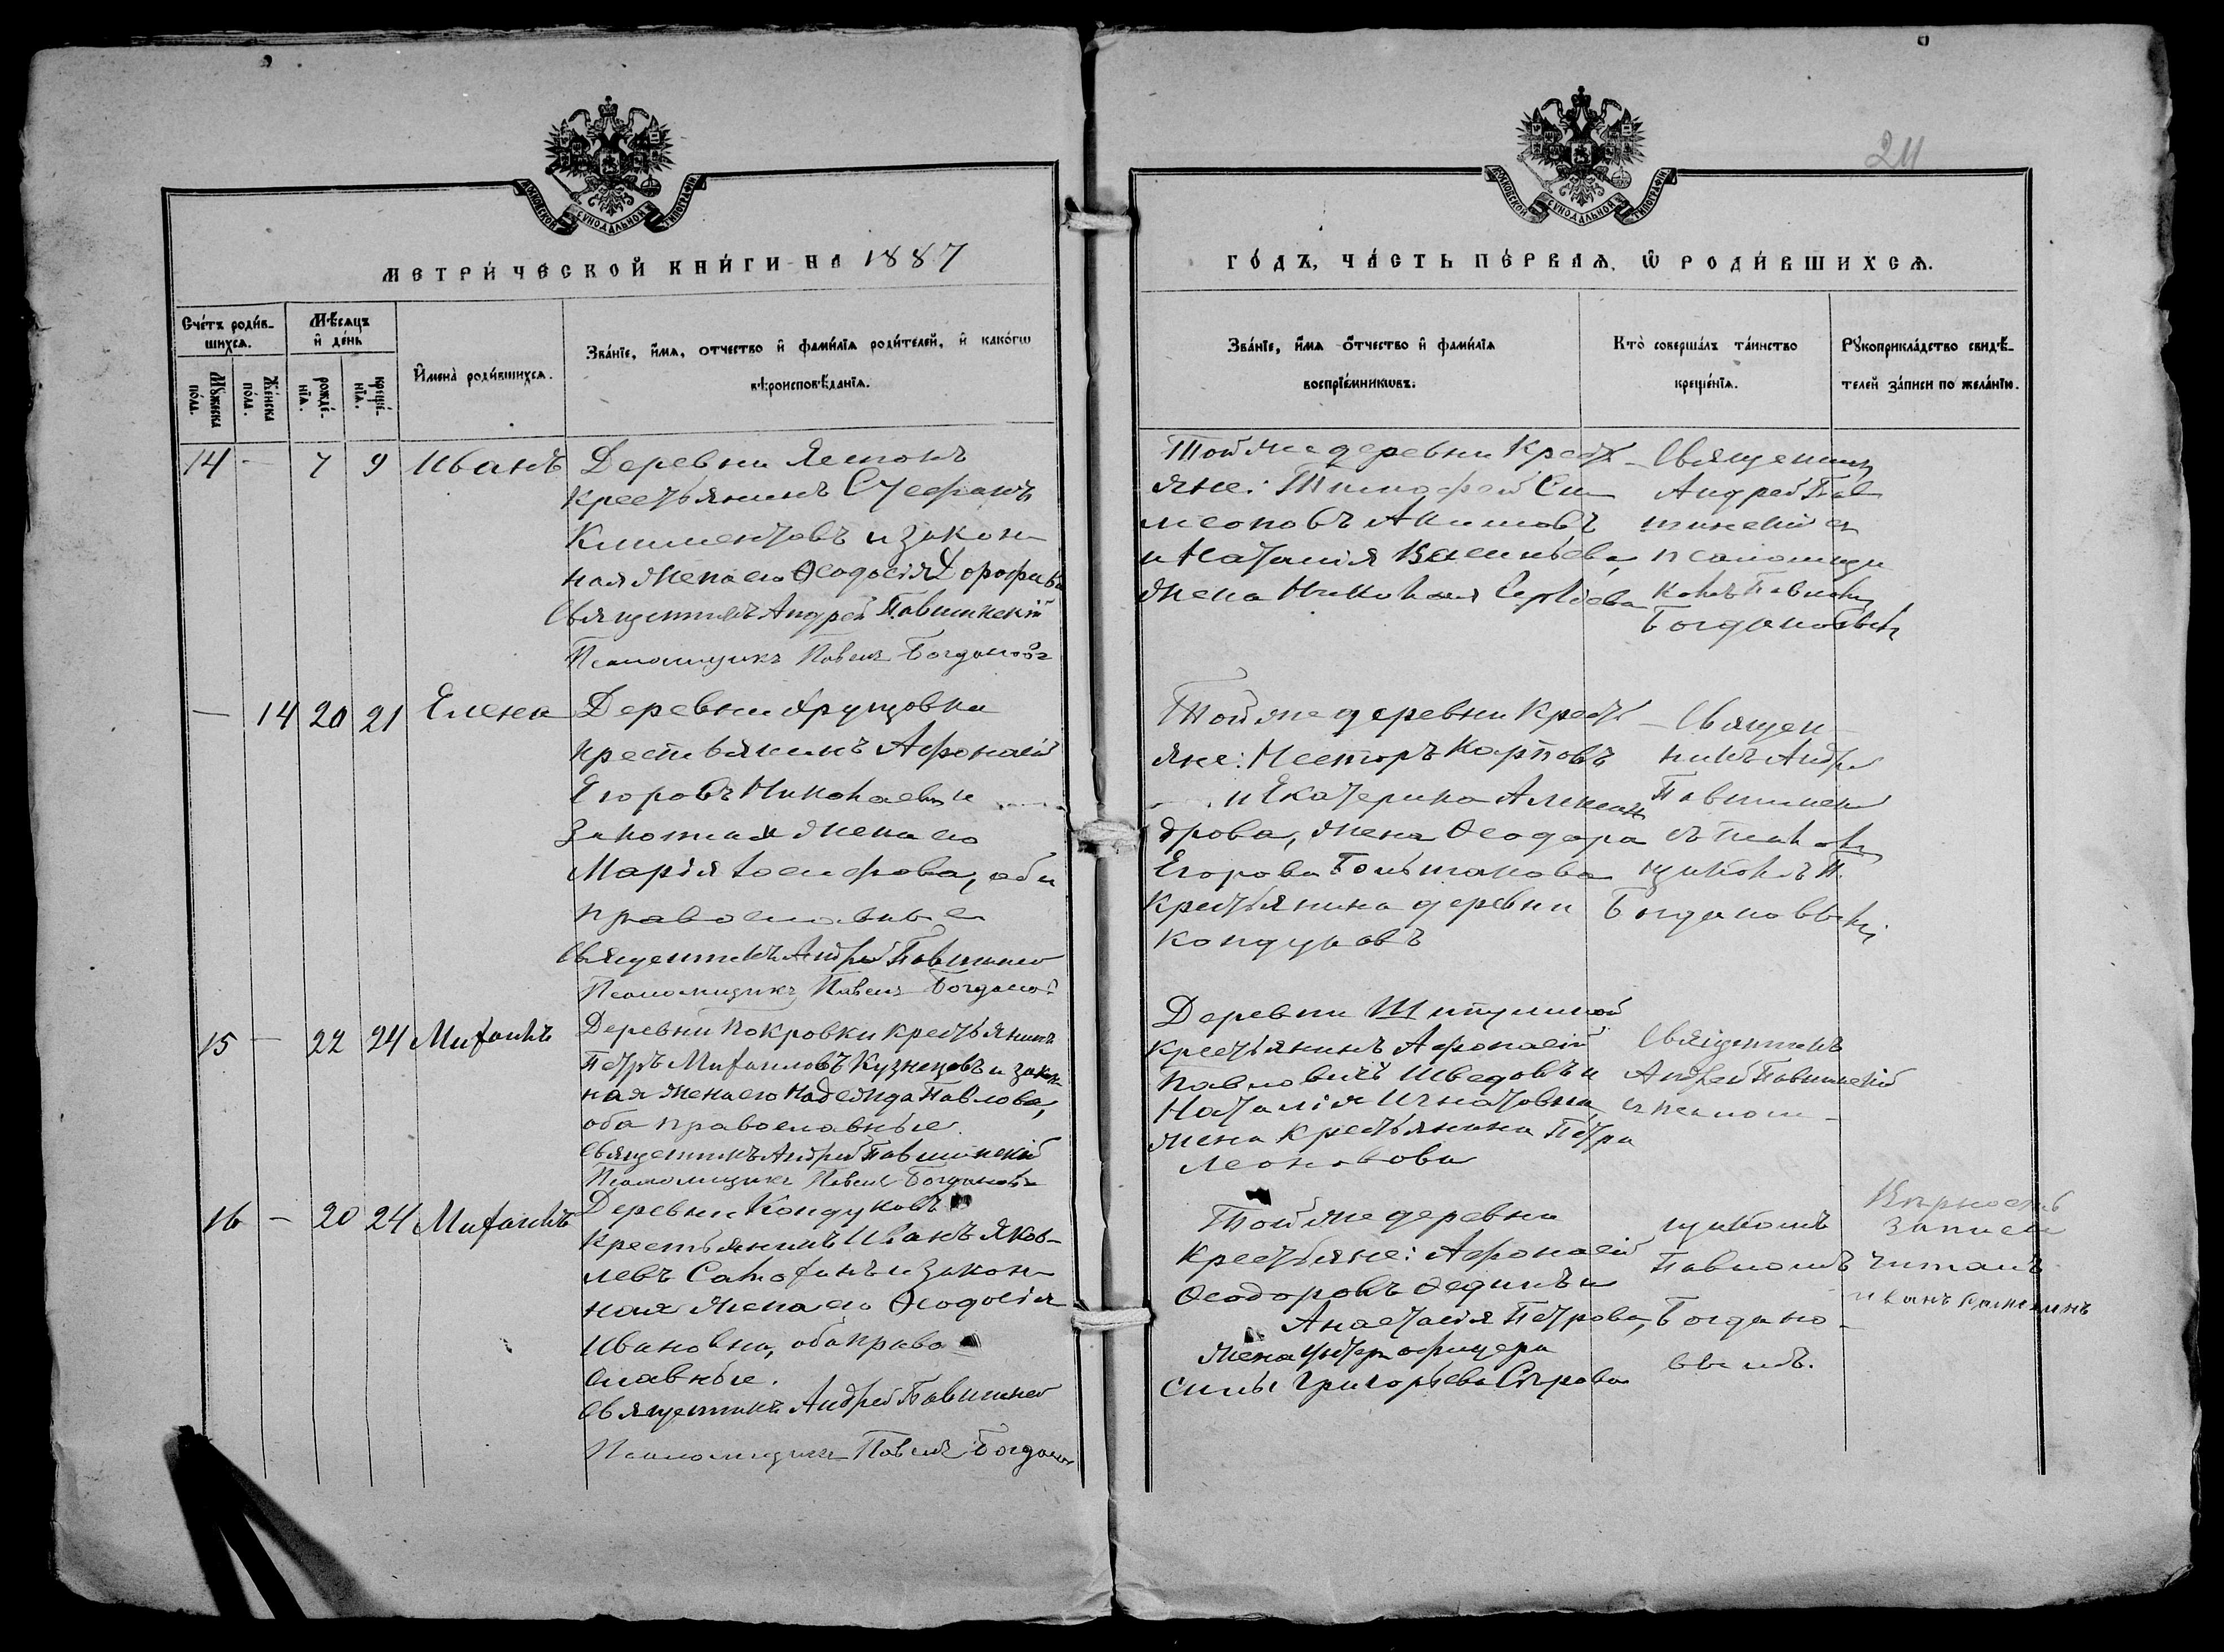 24
МОСКОВСКОЙ СѴНОДАЛЬНОЙ ТИПОГРАФІИ
МОСКОВСКОЙ СѴНОДАЛЬНОЙ ТИПОГРАФІИ
МЕТРИ́ЧЕСКОЙ КНИ́ГИ НА 1887
ГО́ДЪ, ЧА́СТЬ ПЕ́РВАѦ, Ѡ҆ РОДИ́ВШИХСѦ.
Сче́тъ роди́в-
шихсѧ.
Мꙋ́жеска
по́ла.
Же́нска
по́ла.
Мѣ́сѧцъ
и҆ де́нь
рожде́-
нїѧ.
креще́-
нїѧ.
И҆мена̀ роди́вшихсѧ.
Зва́нїе, и҆́мѧ, о҆́тчество и҆ фами́лїѧ роди́телей, и҆ како́гѡ
вѣроисповѣ́данїѧ.
Зва́нїе, и҆́мѧ о҆́тчество и҆ фами́лїѧ
воспрїе́мникѡвъ.
Кто̀ соверша́лъ та́инство
креще́нїѧ.
Рꙋкоприкла́дство свидѣ́-
телей за́писи по жела́нїю.
14 - 7 9 Иванъ
Деревни
крестьянинъ Стефанъ
Климентовъ и закон
ная жена его Ѳеодосія Дорофеева
Священникъ Андрей Павшинскій
Псаломщикъ Павелъ Богданов
Той же деревни Крест
яне: Тимофей Си
меоновъ Акимовъ
и Наталія Васильева,
жена Николая Сергеева
Священник
Андрей Пав
шинскій съ
псаломщи
комъ Павломъ
Богдановым
— 14 20 21 Елена
Деревни Хрущовки
крестьянинъ Афонасій
Егоровъ Николаевъ и
Законная жена его
Марія Іосифова, оба
православные
Священникъ Андрей Павшинс
Псаломщикъ Павелъ Богданов
Той же деревни Крест
яне: Несторъ Карповъ
и Екатерина Алексан
дрова, жена Ѳеодора
Егорова Большакова
крестьянина деревни
Кондуковъ
Священ
никъ Андре
Павшинск
съ псалом
щикомъ П.
Богдановым
15 — 22 24 Михаилъ
Деревни Покровки крестьянинъ
Петръ Михаиловъ Кузнецовъ и закон
ная жена его Надежда Павлова,
оба православные.
Священникъ Андрей Павшинскій
Псаломщикъ Павелъ Богданов
Деревни Шипулиной
крестьянинъ Афонасій
Павловичъ Шведовъ и
Наталія Игнатовна
жена крестьянина Петра
Леонова
Священникъ
Андрей Павшинскій
съ псалом-
16 — 20 24 Михаилъ
Деревни Кондуковъ
Крестьянинъ Иванъ Яков-
левъ Сапохинъ и закон
ная жена его Ѳеодосія
Ивановна, оба право
славные.
Священникъ Андрей Павшинс
Псаломщикъ Павелъ Богданов
Той же деревни
крестьяне: Афонасій
Ѳеодоровъ Ѳединъ и
Анастасія Петрова,
жена унтеръ офицера
Силы Григорьева Серова
щикомъ
Павломъ
Богдано-
вымъ.
Вѣрность
записи
читалъ
Иванъ